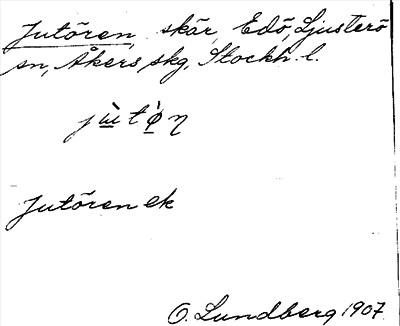 Jutören, skär, Edö, Ljusterö
sn, Åkers skg, Stockh. l.
jɯ̀tǿn
Jutören ek
O. Lundberg 1907.